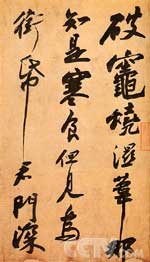 破竈燒濕葦那
知是寒食但見烏
銜帋君門深
CCTV.com